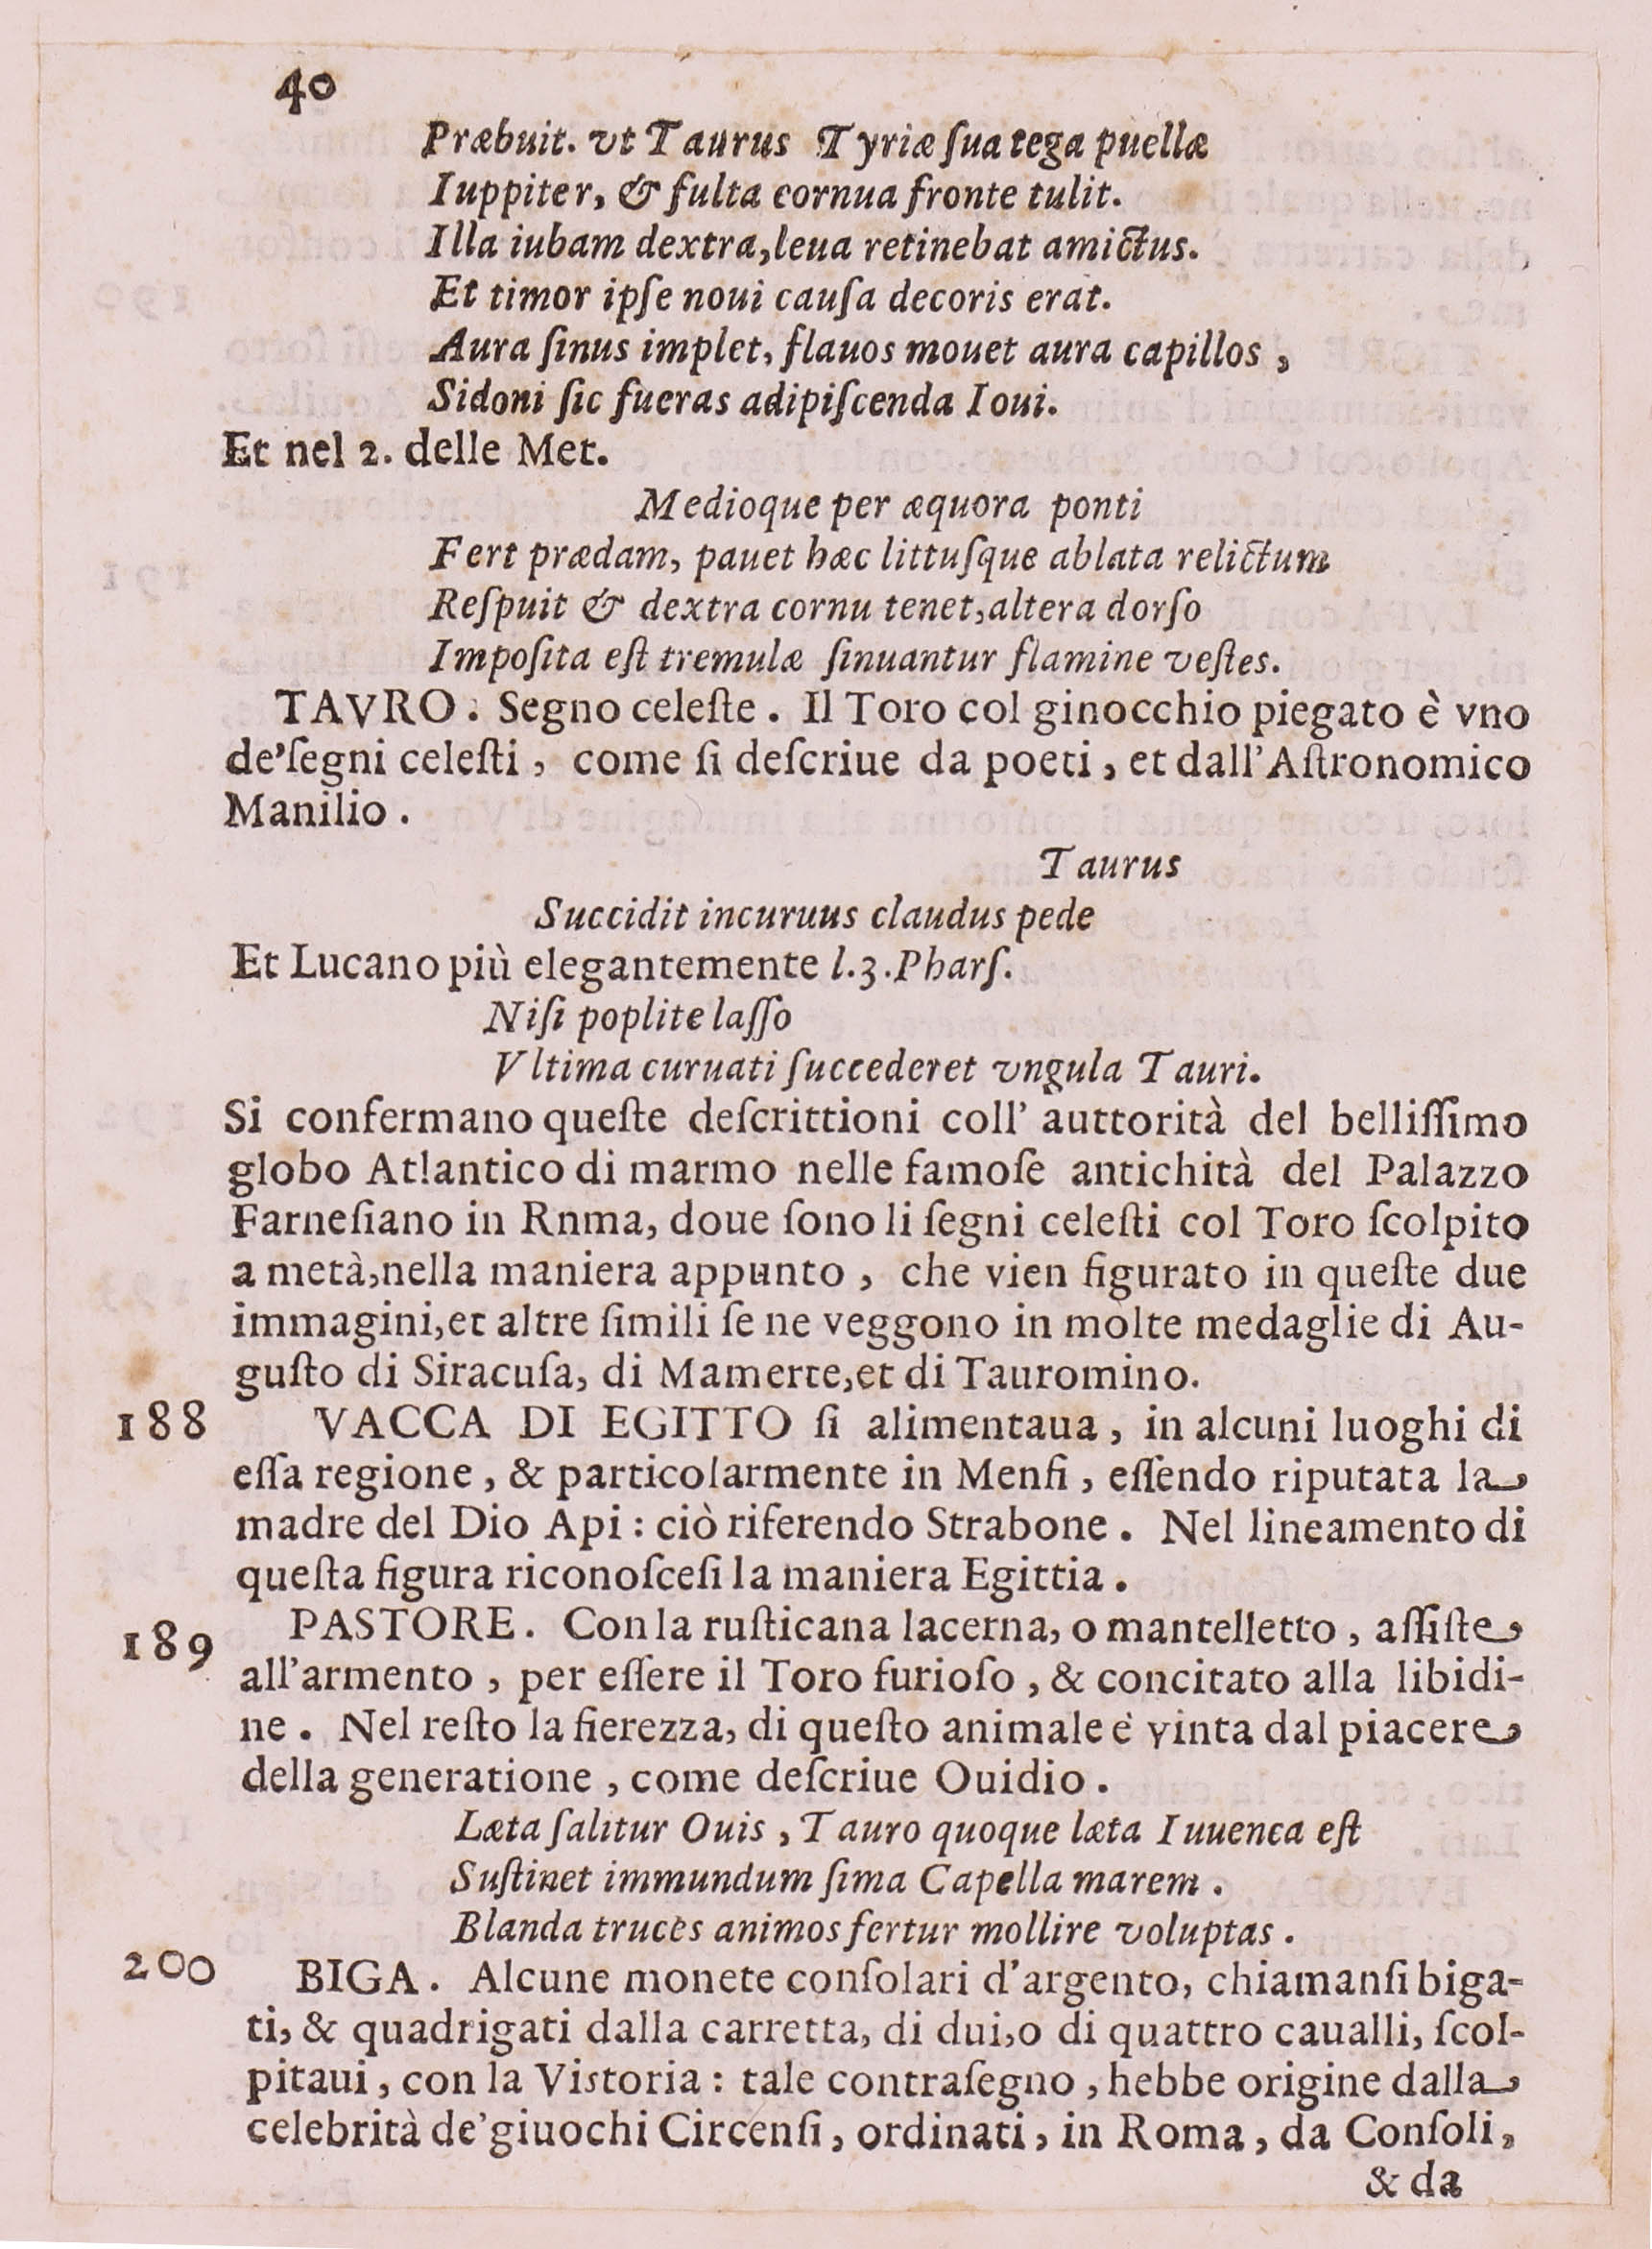 40
Præbuit. vt Taurus Tyriæ ſua tega puellæ
Iuppiter, & fulta cornua fronte tulit.
Illa iubam dextra,leua retinebat amictus.
Et timor ipſe noui cauſa decoris erat.
Aura ſinus implet, flauos mouet aura capillos ,
Sidoni ſic fueras adipiſcenda Ioui.
Et nel 2. delle Met.
Medioque per æquora ponti
Fert prædam, pauet hæc littuſque ablata relictum
Reſpuit & dextra cornu tenet,altera dorſo
Impoſita eſt tremulæ ſinuantur flamine veſtes.
TAVRO. Segno celeſte . Il Toro col ginocchio piegato è vno
de'ſegni celeſti , come ſi deſcriue da poeti , et dall'Aſtronomico
Manilio .
Taurus
Succidit incuruus claudus pede
Et Lucano più elegantemente l.3.Pharſ.
Niſi poplite laſſo
Vltima curuati ſuccederet vngula Tauri.
Si confermano queſte deſcrittioni coll' auttorità del belliſſimo
globo Atlantico di marmo nelle famoſe antichità del Palazzo
Farneſiano in Rnma, doue ſono li ſegni celeſti col Toro ſcolpito
a metà,nella maniera appunto , che vien figurato in queſte due
immagini,et altre ſimili ſe ne veggono in molte medaglie di Au-
guſto di Siracuſa, di Mamerte,et di Tauromino.
188 VACCA DI EGITTO ſi alimentaua , in alcuni luoghi di
eſſa regione , & particolarmente in Menfi , eſſendo riputata la
madre del Dio Api : ciò riferendo Strabone . Nel lineamento di
queſta figura riconoſceſi la maniera Egittia .
189 PASTORE. Con la ruſticana lacerna, o mantelletto , aſſiſte
all'armento , per eſſere il Toro furioſo , & concitato alla libidi-
ne . Nel reſto la fierezza, di queſto animale è vinta dal piacere
della generatione , come deſcriue Ouidio .
Læta ſalitur Ouis , Tauro quoque læta Iuuenca eſt
Suſtinet immundum ſima Capella marem .
Blanda truces animos fertur mollire voluptas .
200 BIGA. Alcune monete conſolari d'argento, chiamanſi biga-
ti, & quadrigati dalla carretta, di dui,o di quattro caualli, ſcol-
pitaui , con la Vistoria : tale contraſegno , hebbe origine dalla
celebrità de'giuochi Circenſi , ordinati , in Roma , da Conſoli ,
& da